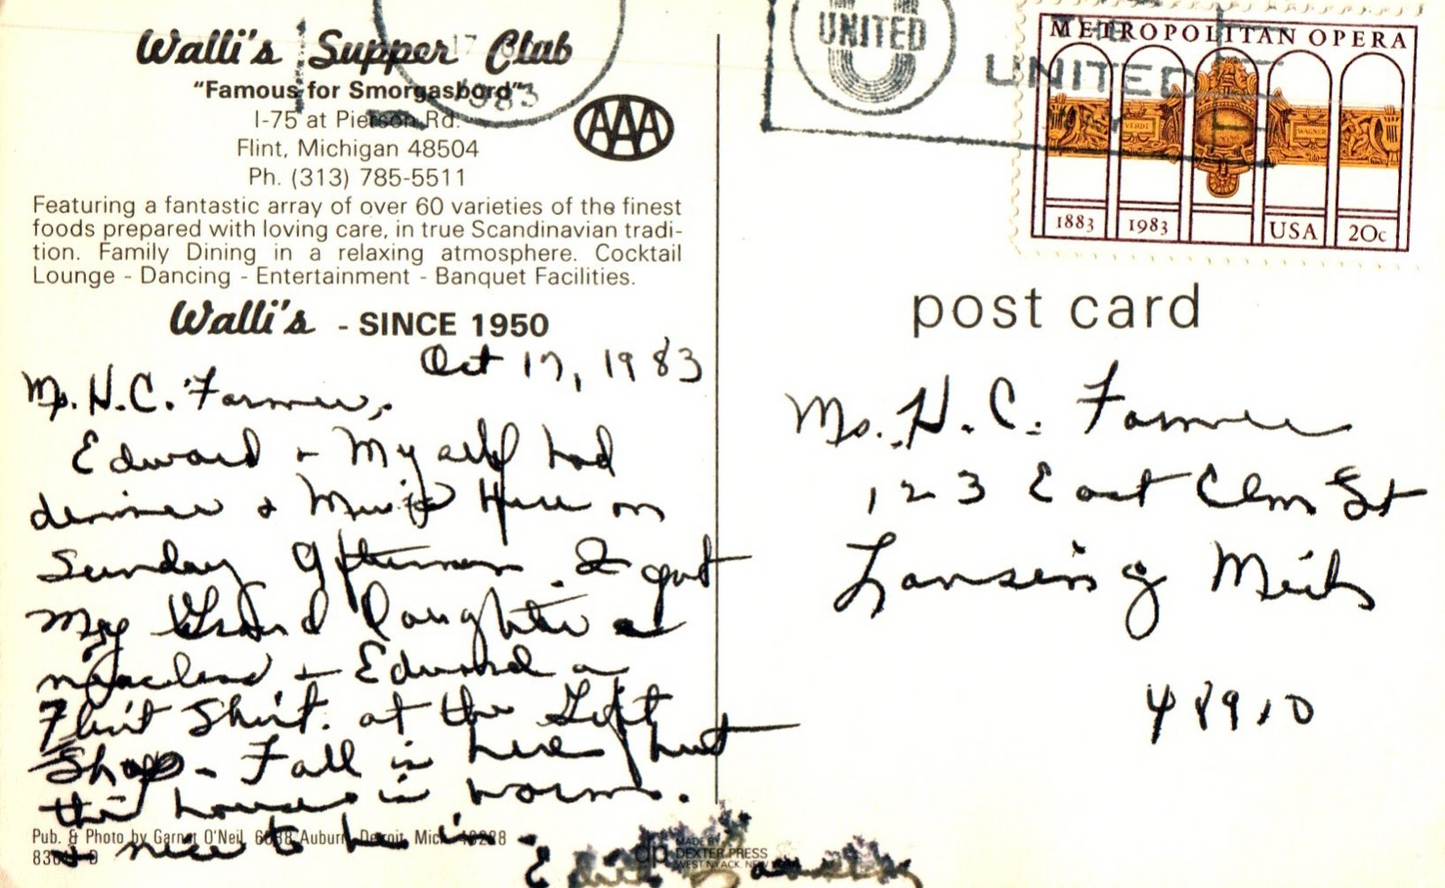 Walli's Supper Club
"Famous for Smorgasbord"
I-75 at Pierson Rd.
Flint, Michigan 48504
Ph. (313) 785-5511
AAA
Featuring a fantastic array of over 60 varieties of the finest
foods prepared with loving care, in true Scandinavian tradi-
tion. Family Dining in a relaxing atmosphere. Cocktail
Lounge - Dancing - Entertainment - Banquet Facilities.
Walli's - SINCE 1950
Oct 17, 1983
Ms. H.C. Farmer,
Edward + Myself had
dinner & Music Here on
Sunday Afternoon. I got
My Grand Daughter a
necklace + Edward a
Flint Shirt. at the Gift
Shop - Fall is here but
the house is warm.
+ nice to be in
Pub. & Photo by Garnet O'Neil, Auburn, Detroit, Mich. 48228
MADE BY
DEXTER PRESS
WEST NYACK, NEW
dp
17
1983
UNITED
UNITED
METROPOLITAN OPERA
VERDI
WAGNER
1883 1983 USA 20c
post card
Ms. H. C. Farmer
123 East Elm St
Lansing Mich
48910